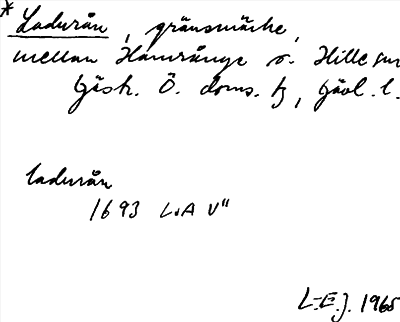 * Ladurån, gränsmärke,
mellan Hamrånge o. Hille snr
Gästr. Ö. doms. tg, Gävl. l.
ladurån
1693 LSA V"
L-E.J. 1965